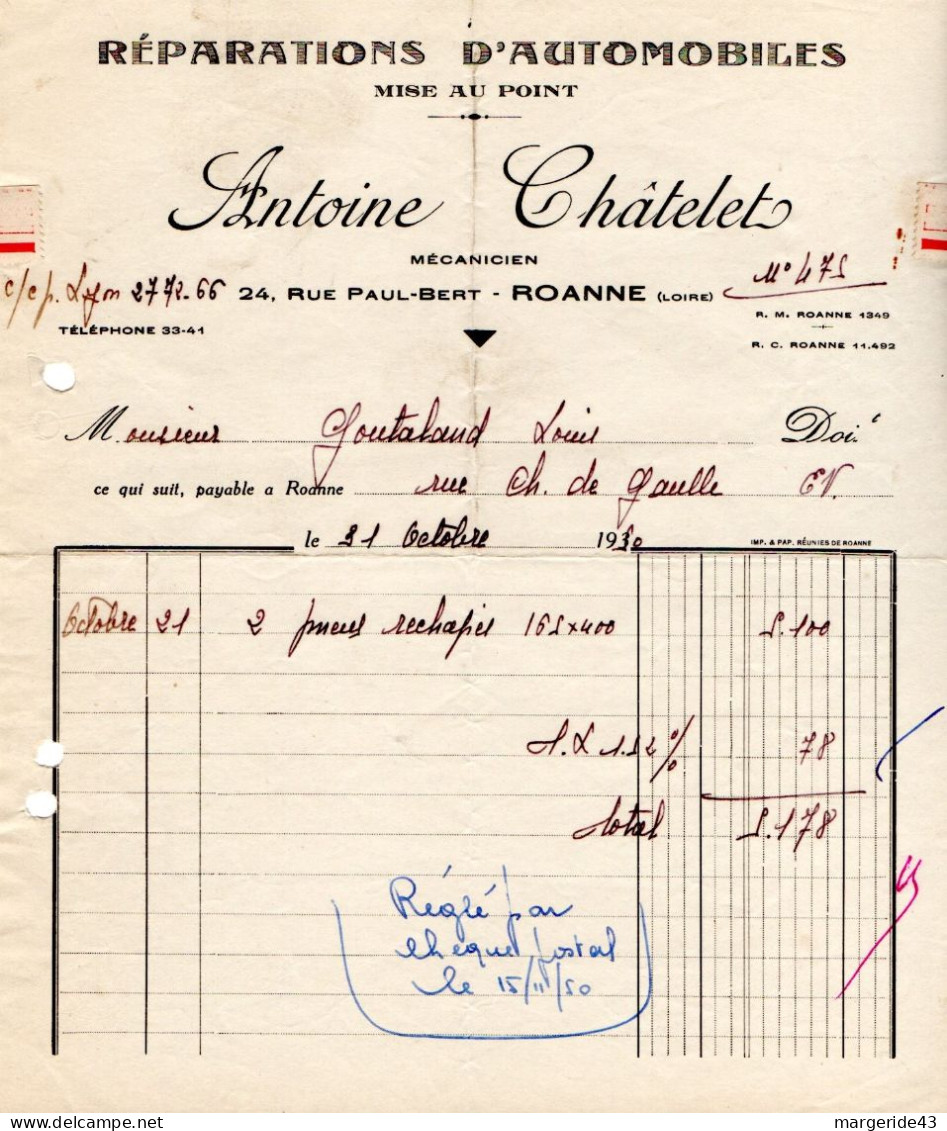 RÉPARATIONS D'AUTOMOBILES
MISE AU POINT
Antoine Châtelet
MÉCANICIEN
c/c p. Lyon 2772-66
24, RUE PAUL-BERT - ROANNE (LOIRE)
N° 475
TÉLÉPHONE 33-41
R. M. ROANNE 1349
R. C. ROANNE 11.492
Monsieur Goutaland Louis Doit
ce qui suit, payable a Roanne rue Ch. de Gaulle EV.
le 31 Octobre 1950
IMP. & PAP. RÉUNIES DE ROANNE
Octobre 21 2 pneus rechapés 165x400 5.100
T.L 1.52 % 78
Total 5.178
Réglé par
chèque postal
le 15/11/50
margeride43